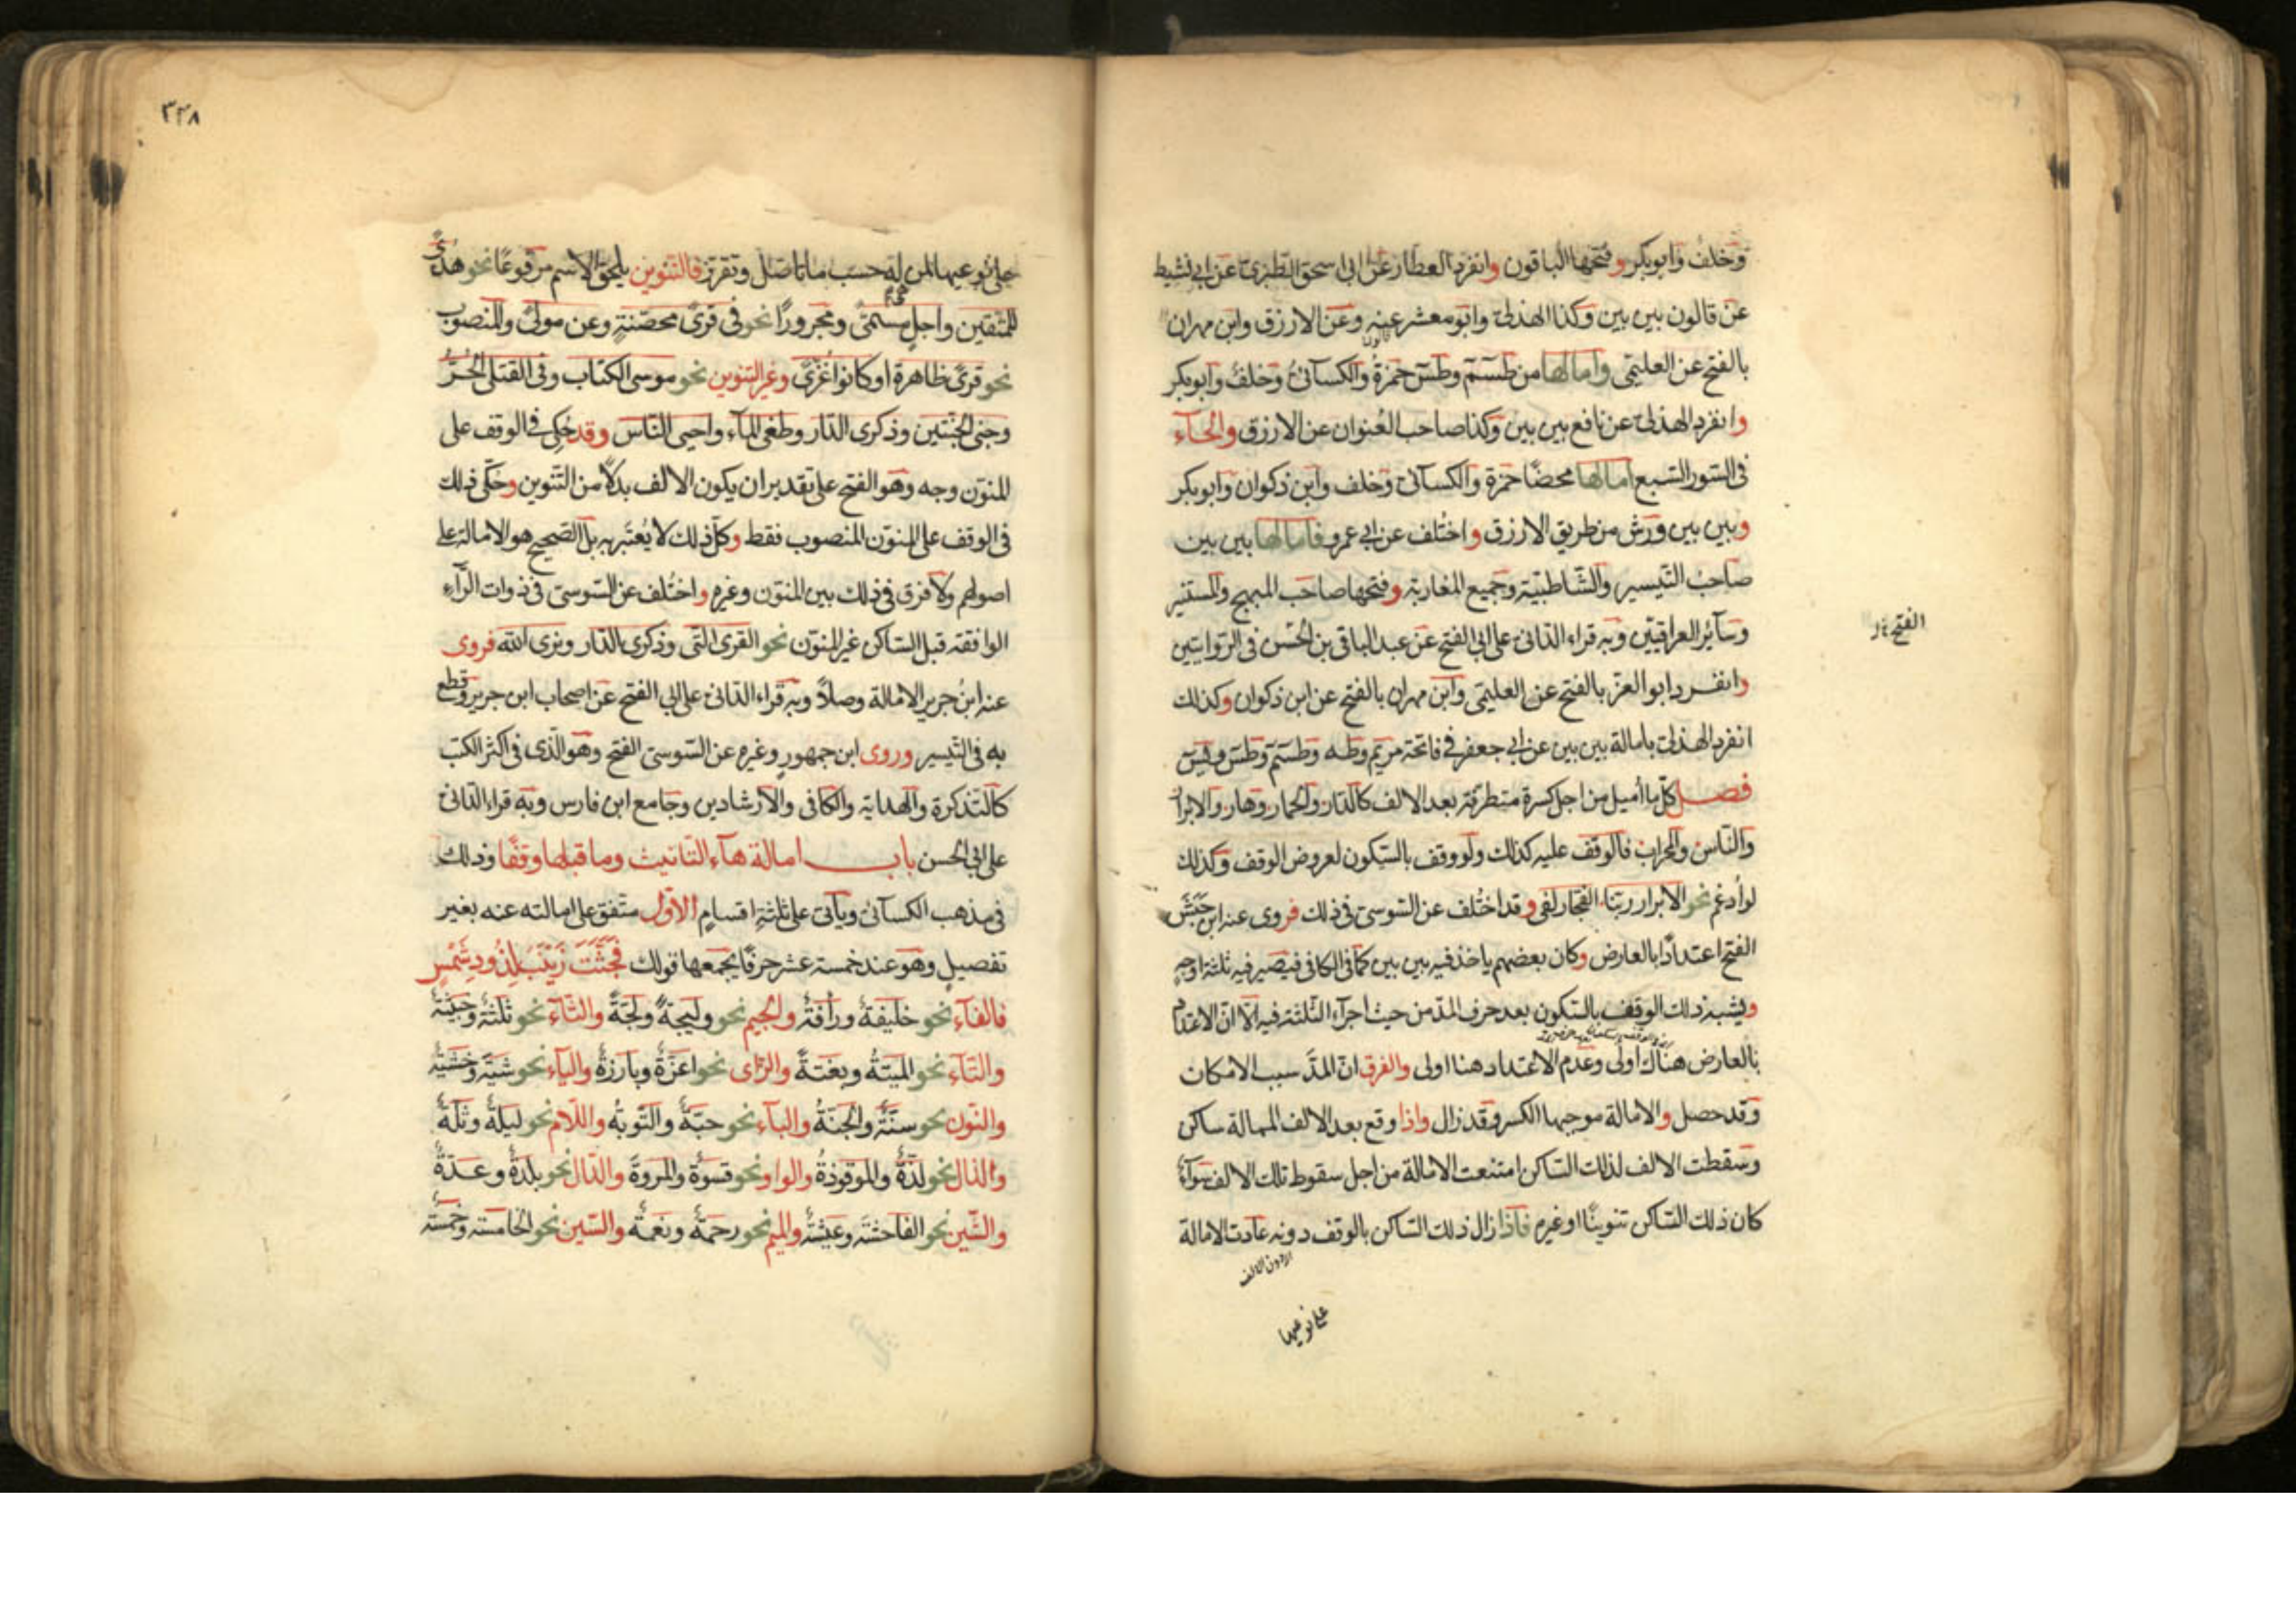 وخلف وابوبكر وفتحها الباقون وانفرد العطار عن ابي اسحق الطبري عن ابي نشيط
عن قالون بين بين وكذا الهذلي وابومعشر عنه وعن الازرق وابن مهران
قالون
بالفتح عن العليمي وامالها من طسم وطس حمزة والكسائي وخلف وابوبكر
وانفرد الهذلي عن نافع بين بين وكذا صاحب العنوان عن الازرق والحاء
في السور السبع امالها محضا حمزة والكسائي وخلف وابن ذكوان وابوبكر
وبين بين ورش من طريق الازرق واختلف عن ابي عمرو فامالها بين بين
صاحب التيسير والشاطبية وجميع المغاربة وفتحها صاحب المبهج والمستنير
وسائر العراقيين وبه قراء الداني على ابي الفتح عن عبد الباقي بن الحسن في الروايتين
وانفرد ابو العز بالفتح عن العليمي وابن مهران بالفتح عن ابن ذكوان وكذلك
انفرد الهذلي بامالة بين بين عن ابي جعفر في فاتحة مريم وطه وطسم وطس ويس
فصل كل ما أميل من اجل كسرة متطرفة بعد الالف كالدار والحمار وهار والابرار
والناس والمحراب فالوقف عليه كذلك ولو وقف بالسكون لعروض الوقف وكذلك
لو أدغم نحو الابرار ربنا الفجار لفي وقد اختلف عن السوسي في ذلك فروى عنه ابن حبش
الفتح اعتدادا بالعارض وكان بعضهم ياخذ فيه بين بين كما في الكافي فيصير فيه ثلثة اوجه
ويشبه ذلك الوقف بالسكون بعد حرف المد من حيث اجراء الثلثة فيه الا ان الاعتداد
بالعارض هناك اولى وعدم الاعتداد هنا اولى والفرق ان المد سببه الاسكان
وقد حصل والامالة موجبها الكسر وقد زال واذا وقع بعد الالف الممالة ساكن
وسقطت الالف لذلك الساكن امتنعت الامالة من اجل سقوط تلك الالف سواء
كان ذلك الساكن تنوينا او غيره فاذا زال ذلك الساكن بالوقف دونه عادت الامالة
اي دون الالف
على نوعيها
٣٣٨
على نوعيها لمن له حسب ما تاصل وتقرر فالتنوين يلحق الاسم مرفوعا نحو هدى
للمتقين واجل مسمى ومجرورا نحو في قرى محصنة وعن مولى والمنصوب
نحو قرى ظاهرة او كانوا غزى وغير التنوين نحو موسى الكتاب وفي القتلى الحر
وجنى الجنتين وذكرى الدار وطغى الماء واحيى الناس وقد حكي في الوقف على
المنون وجه وهو الفتح على تقدير ان يكون الالف بدلا من التنوين وحكي ذلك
في الوقف على المنون المنصوب فقط وكل ذلك لا يعتبر به بل الصحيح هو الامالة على
اصولهم ولا فرق في ذلك بين المنون وغيره واختلف عن السوسي في ذوات الراء
الواقعة قبل الساكن غير المنون نحو القرى التي وذكرى الدار ونرى الله فروى
عنه ابن جرير الامالة وصلا وبه قراء الداني على ابي الفتح عن اصحاب ابن جرير وقطع
به في التيسير وروى ابن جمهور وغيره عن السوسي الفتح وهو الذي في اكثر الكتب
كالتذكرة والهداية والكافي والارشادين وجامع ابن فارس وبه قراء الداني
على ابي الحسن باب امالة هاء التانيث وما قبلها وقفا وذلك
في مذهب الكسائي وياتي على ثلثة اقسام الاول متفق على امالته عنه بغير
تفصيل وهو عند خمسة عشر حرفا يجمعها قولك فجثت زينب لذود شمس
فالفاء نحو خليفة ورأفة والجيم نحو وليجة ولجة والثاء نحو ثلثة وخبيثة
والتاء نحو الميتة وبغتة والزاى نحو اعزة وبارزة والياء نحو شية وخشية
والنون نحو سنة والجنة والباء نحو حبة والتوبة واللام نحو ليلة وثلة
والذال نحو لذة والموقوذة والواو نحو قسوة والمروة والدال نحو بلدة وعدة
والشين نحو الفاحشة وعيشة والميم نحو رحمة ونعمة والسين نحو الخامسة وخمسة